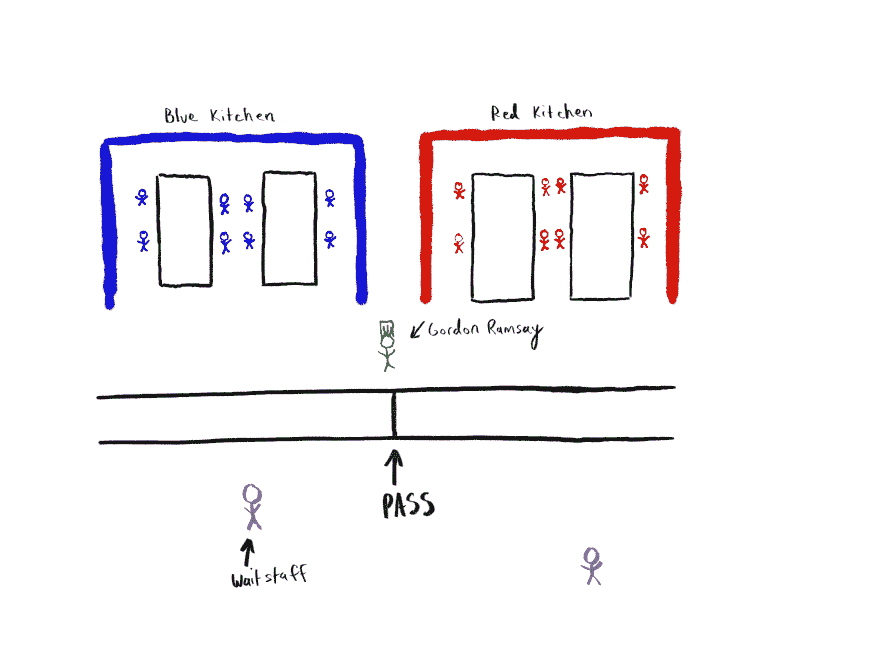 Blue Kitchen
Red Kitchen
Gordon Ramsay
PASS
Waitstaff